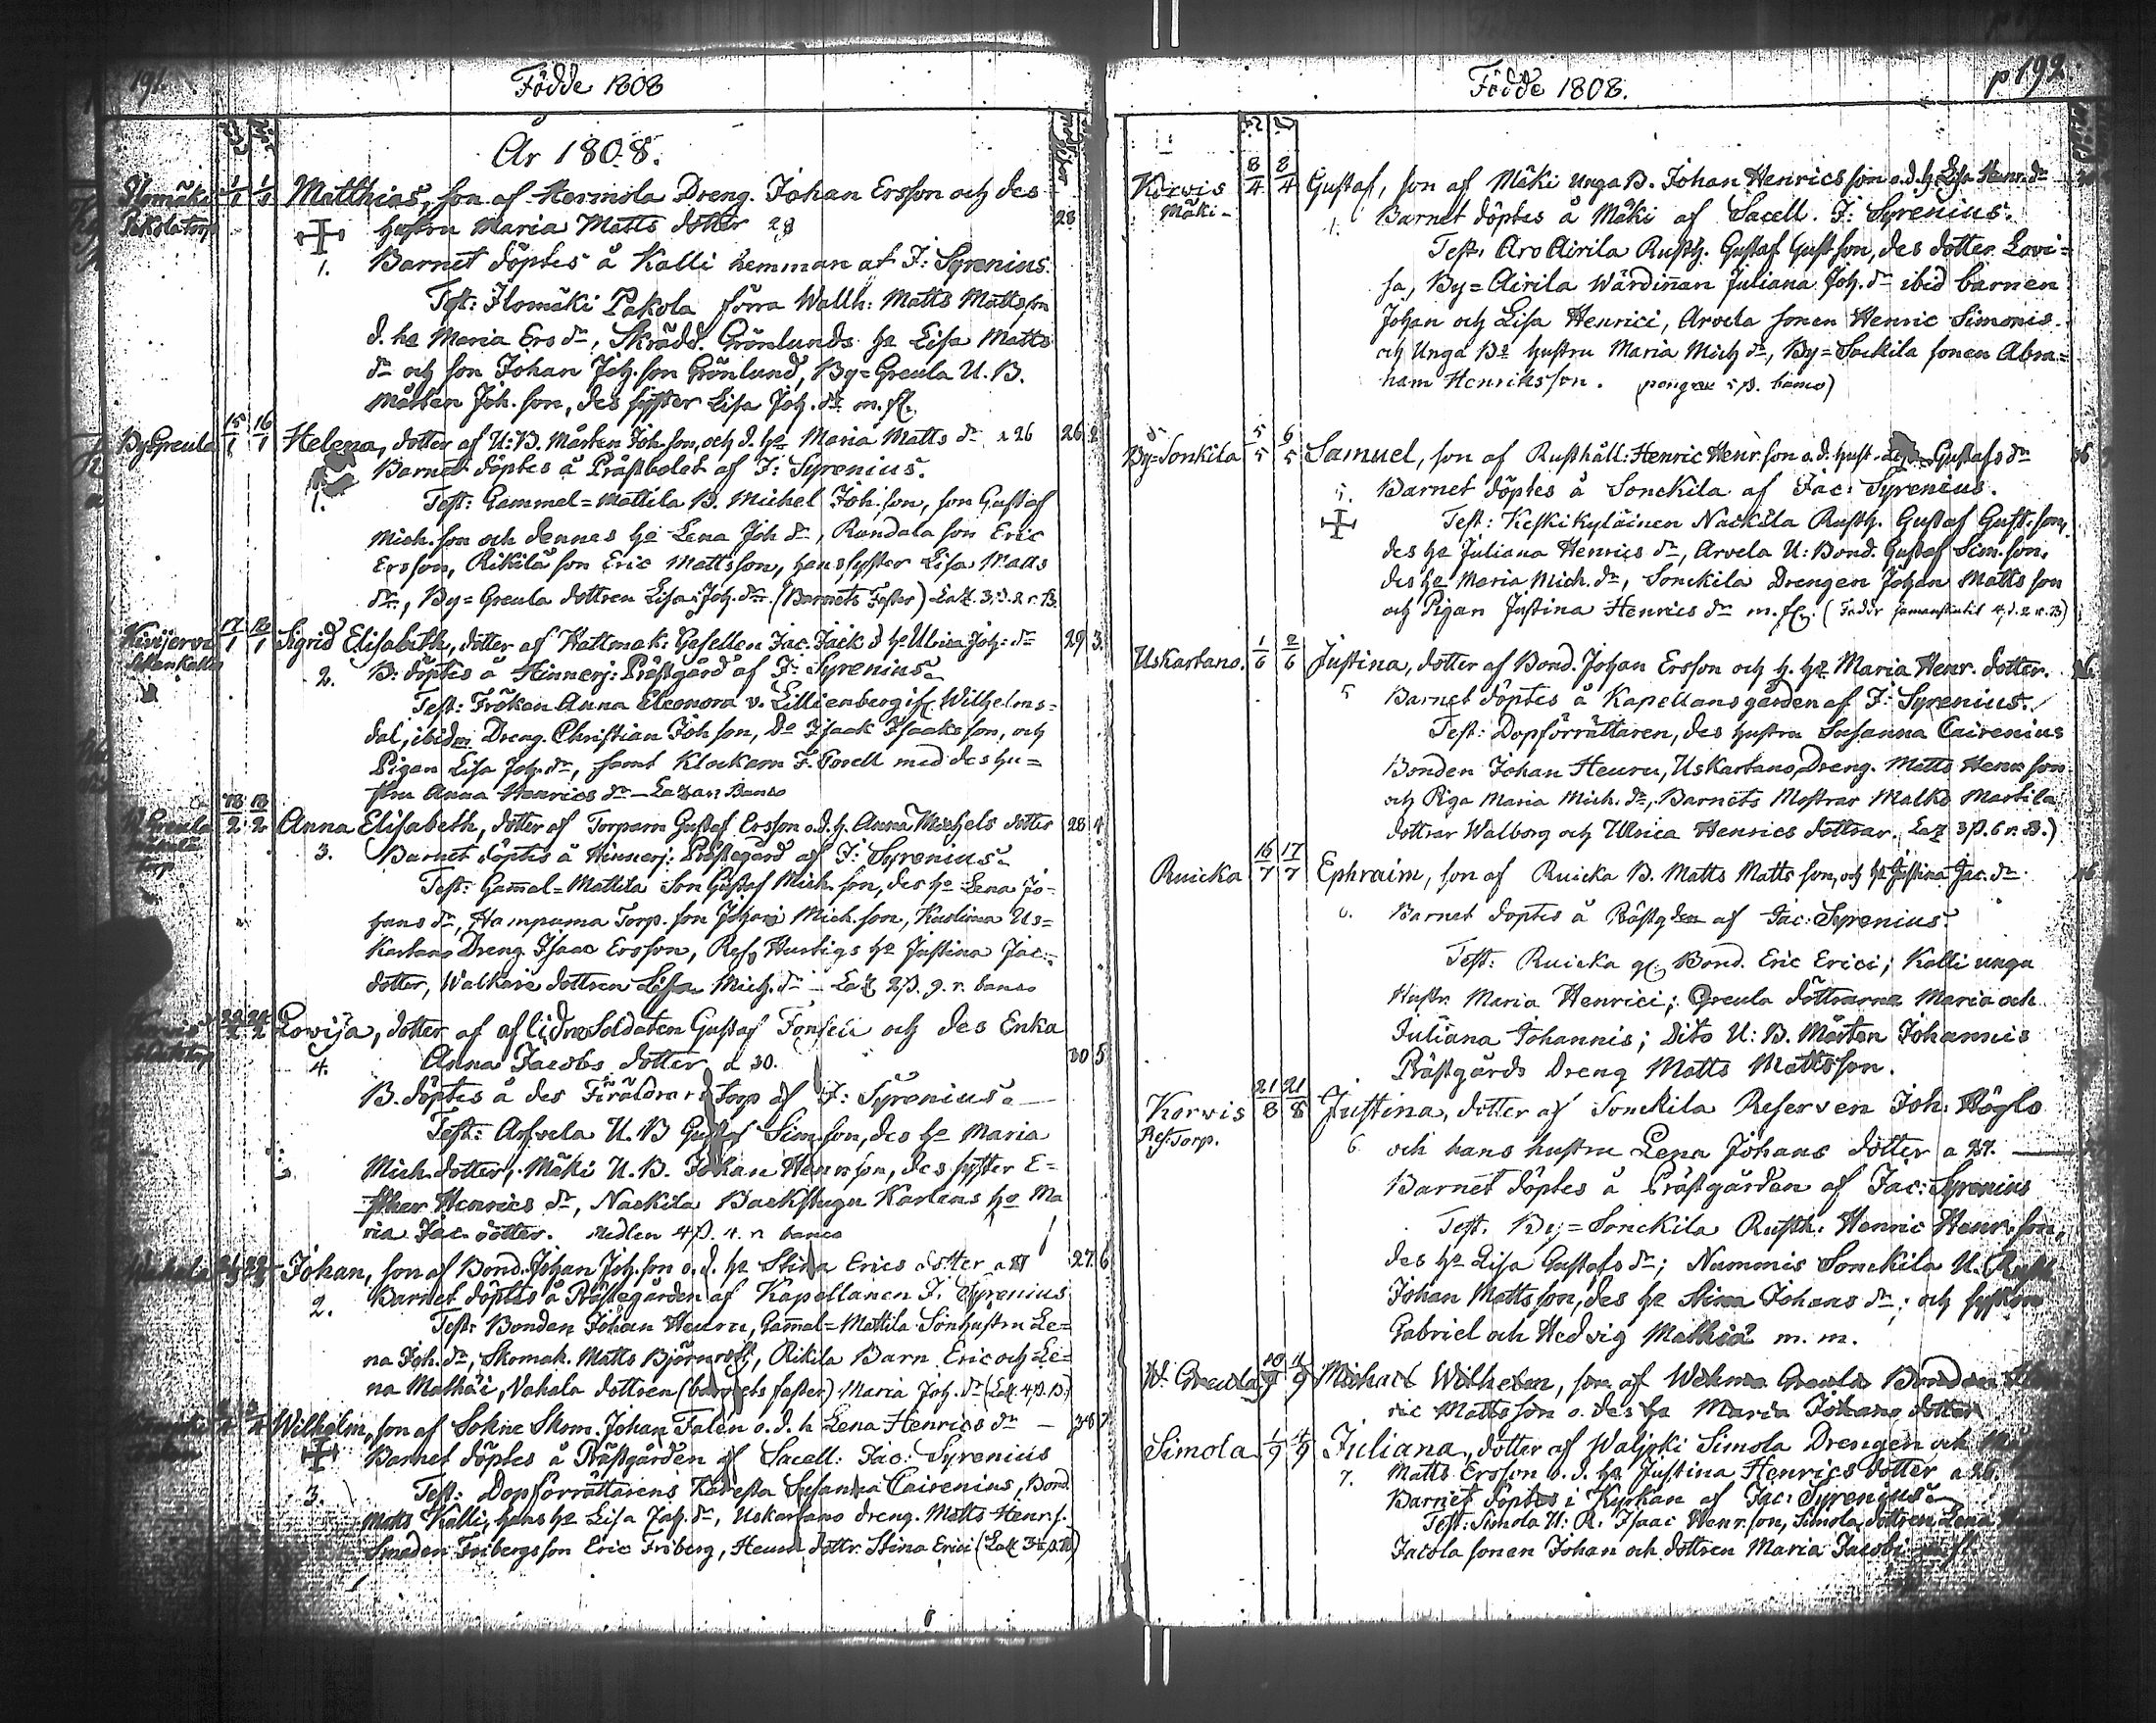 191.
Födde 1808
År 1808.
Ilomäki 1/1 1/1 Matthias, son af Hermola Dreng. Johan Ersson och des
Pakola torp hustru Maria Matts dotter 28 28
1. Barnet döptes å Kalli hemman af J: Syrenius.
Test: Ilomäki Pakola förra Wallh: Matts Matts son
d. ha Maria Ers dr, Skrädd. Grönlunds ha Lisa Matts
dr och son Johan Joh. son Grönlund, By=Greula U. B.
Mårten Joh. son, des syster Lisa Joh. dr m. fl.
By Greula 15/1 16/1 Helena, dotter af U: B. Mårten Joh. son, och d. ha Maria Matts dr a 26 26 2
Barnet döptes å Prästbolet af J: Syrenius.
1. Test: Gammel=Mattila B. Michel Joh. son, son Gustaf
Mich. son och dennes ha Lena Joh dr, Randala son Eric
Ersson, Rikilä son Eric Mattsson, hans syster Lisa Matts
dr, By=Greula dottren Lisa Joh. dr (Barnets Faster)
Kirijervi 17/1 18/1 Sigrid Elisabeth, dotter af Hattmak: Gesellen Jac. Jäck d ha Ulrica Joh: dr 29 3.
2. B: döptes å Hinnerj: Prästgård af J: Syrenius.
Test: Fröken Anna Eleonora v. Lillienberg if. Wilhelms=
dal, ibidm Dreng. Christian Joh son, Do Isaac Isaaks son, och
Pigan Lisa Joh. dr, samt Klockarn F. Porell med des hu=
stru Anna Henrics dr
Greula 18/2 18/2 Anna Elisabeth, dotter af Torparn Gustaf Ersson o. d. h. Anna Michels dotter 28 4
torp
3. Barnet döptes å Hinnerj: Prästegård af J: Syrenius.
Test: Gam̄el=Mattila Son Gustaf Mich. son, des ha Lena Jo=
hans dr, Hampuma Torp. son Johan Mich. son, Us=
kartano Dreng Isaac Ersson, Res. Hurtigs ha Justina Jac:
dotter, Walkare dottren Lisa Mich. dr
22/2 24/2 Lovisa, dotter af aflidne Soldaten Gustaf och des Enka
4. Anna Jacobs dotter a 30. 30 5
B. döptes å des Föräldrars torp af J: Syrenius.
Test: Arvela U. B Gustaf Sim. son, des ha Maria
Mich. dotter, Mäki U. B. Johan Henr. son, des syster E=
sther Henrics dr, Nackila Backstugu Karlens ha Ma
ria Jac. dotter.
Johan, son af Bond. Johan Joh. son o. d. ha Stina Erics dotter 27. 6
2. Barnet döptes å Prästegården af Kapellanen J. Syrenius
Test: Bonden Johan Heuru, Gam̄al=Mattila Sonhustru Le=
na Joh. dr, Skomak. Matts Björnrot, Rikila Barn Eric och Le=
na Mathäi, Vahala dottren (barnets faster) Maria Joh. dr
Wilhelm, son af Sokne Skom. Johan Falen o. d. h Lena Henrics dr 38 7
Barnet döptes å Prästgården af Sacell: Jac: Syrenius
3. Test: Dopförrättarens Käresta Susanna Cairenius, Bond.
Matts Kalli, hans ha Lisa dr, Uskartano dreng. Matts Henr. s.
Smeden Fribergs son Eric Friberg, Heuru dottr. Stina Erici
p 192
Födde 1808.
Korvis 8/4 8/4 Gustaf, son af Mäki unga B. Johan Henrics son o. d. h Lisa Henr. dr
Mäki Barnet döptes å Mäki af Sacell. J: Syrenius.
Test. Aro Airila Rusth. Gustaf Gust. son, des dotter Lovi=
sa, By=Airila Wärdinnan Juliana Joh. dr ibid barnen
Johan och Lisa Henrici, Arvela sonen Henric Simonis
och Unga Bs hustru Maria Mich dr, By=Sonkila sonen Abra=
ham Henriksson.
By=Sonkila 5/5 6/5 Samuel, son af Rusthåll: Henric Henr. son o. d. hust. Lisa Gustafs dr
5. Barnet döptes å Sonckila af Jac: Syrenius.
Test: Keskikyläinen Nackila Rusth. Gustaf Gust. son,
des ha Juliana Henrics dr, Arvela U: Bond. Gustaf Sim. son,
des ha Maria Mich. dr, Sonckila Drengen Johan Matts son
och Pigan Justina Henrics dr m. fl.
Uskartano. 1/6 2/6 Justina, dotter af Bond. Johan Ersson och h. ha Maria Henr. dotter.
5 Barnet döptes å Kapellansgården af J: Syrenius.
Test: Dopförrättaren, des hustru Susanna Cairenius
Bonden Johan Heuru, Uskartano Dreng. Matts Henr son
och Piga Maria Mich. dr, Barnets Mostrar Malko Marttila
dottrar Walborg och Ulrica Henrics döttrar.
Ruicka 16/7 17/7 Ephraim, son af Ruicka B. Matts Matts son, och ha Justina Jac. dr
6. Barnet döptes å Prästgden af Jac: Syrenius.
Test: Ruicka gl: Bond. Eric Erici; Kalli unga
Hustr. Maria Henrici; Greula döttrarna Maria och
Juliana Johannis; Dito U: B. Mårten Johannis
Prästgårds Dreng Matts Mattsson.
Korvis 21/8 21/8 Justina, dotter af Sonckila Reserven Joh:
Res. Torp. 6 och hans hustru Lena Johans dotter a 27.
Barnet döptes å Prästgården af Jac: Syrenius
Test. By=Sonckila Rusth: Henric Henr. son,
des ha Lisa Gustafs dr; Nummis Sonckila U. Rusth
Johan Matts son, des ha Stina Johans dr; och syskon
Gabriel och Hedvig Mathiä m. m.
W. Greula 10/9 11/9 Michael Wilhelm, son af Greula Bonden
ric Mattsson o. des ha Maria Johans dotter
Simola 1/9 4/9 Juliana, dotter af Simola Drengen och
7. Matts Ersson o. d. ha Justina Henrics dotter a 26.
Barnet döptes i Kyrkan af Jac: Syrenius
Test: Simola U: R. Isaac Henr. son, Simola dottren Lena
Jacola sonen Johan och dottren Maria Jacobi